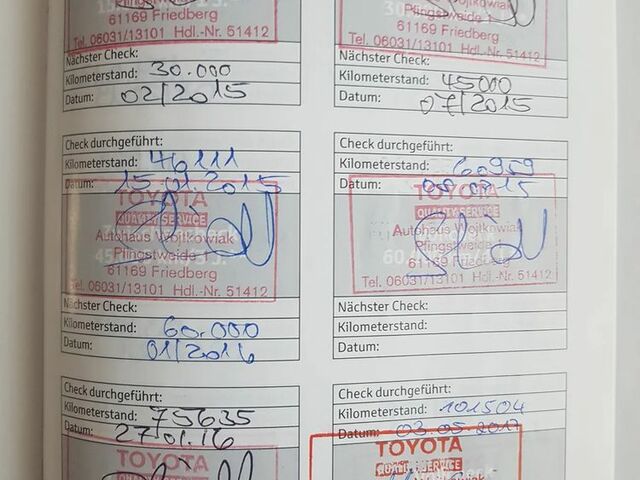 Pfingstweide 1
61169 Friedberg
Tel. 06031/13101 Hdl.-Nr. 51412
Nächster Check:
Kilometerstand: 30.000
Datum: 02/2015
Autohaus Wojtkowiak
Pfingstweide 1
61169 Friedberg
Tel. 06031/13101 Hdl.-Nr. 51412
Nächster Check:
Kilometerstand: 45000
Datum: 07/2015
Check durchgeführt:
Kilometerstand: 46111
Datum: 15.01.2015
TOYOTA
QUALITÄTSSERVICE
Autohaus Wojtkowiak
Pfingstweide 1
61169 Friedberg
Tel. 06031/13101 Hdl.-Nr. 51412
Nächster Check:
Kilometerstand: 60.000
Datum: 01/2016
Check durchgeführt:
Kilometerstand: 60959
Datum:
TOYOTA
Autohaus Wojtkowiak
Pfingstweide 1
61169 Friedberg
Tel. 06031/13101 Hdl.-Nr. 51412
Nächster Check:
Kilometerstand:
Datum:
Check durchgeführt:
Kilometerstand: 75635
Datum: 27.01.16
TOYOTA
Check durchgeführt:
Kilometerstand: 101504
Datum: 03.05.2017
TOYOTA